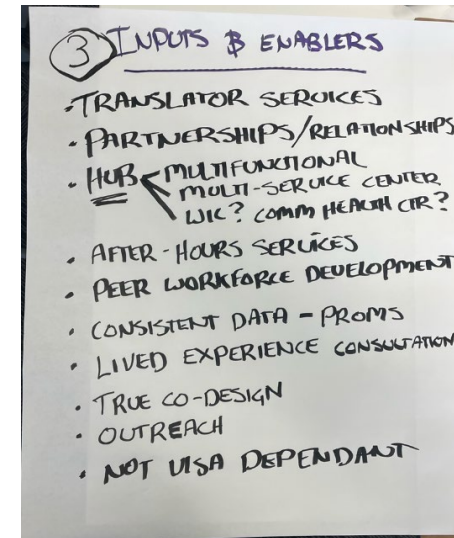 3 INPUTS & ENABLERS
• TRANSLATOR SERVICES
• PARTNERSHIPS/RELATIONSHIPS
• HUB MULTIFUNCTIONAL
MULTI-SERVICE CENTER
WIC? COMM HEALTH CTR?
• AFTER-HOURS SERVICES
• PEER WORKFORCE DEVELOPMENT
• CONSISTENT DATA - PROMS
• LIVED EXPERIENCE CONSULTATION
• TRUE CO-DESIGN
• OUTREACH
• NOT VISA DEPENDANT